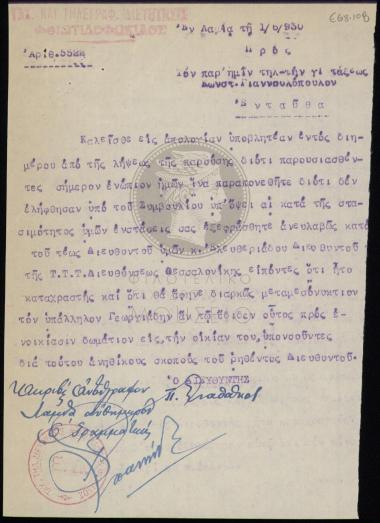 ΤΑΧ. ΚΑΙ ΤΗΛΕΓΡΑΦ. ΔΙΕΥΘΥΝΣΙΣ
ΦΘΙΩΤΙΔΟΦΩΚΙΔΟΣ
Ἐν Λαμίᾳ τῇ 1/6/930
Ἀριθ.5522
Πρὸς
Τὸν παρ' ἡμῖν τηλ-τὴν γ' τάξεως
Κωνστ. Γιαννουλόπουλον
Ἐνταῦθα
Καλεῖσθε εἰς ἀπολογίαν ὑποβλητέαν ἐντὸς διη-
μέρου ἀπὸ τῆς λήψεως τῆς παρούσης διότι παρουσιασθέν-
τες σήμερον ἐνώπιον ἡμῶν ἵνα παραπονεθῆτε διότι δὲν
ἐλήφθησαν ὑπὸ τοῦ Συμβουλίου ὑπ' ὄψει αἱ κατὰ τῆς στα-
σιμότητος ὑμῶν ἐνστάσεις σας ἐξεφράσθητε ἀνευλαβῶς κατὰ
τοῦ τέως Διευθυντοῦ ὑμῶν κ. Ἐλευθεριάδου Διευθυντοῦ νῦ
τῆς Τ.Τ.Τ. Διευθύνσεως Θεσσαλονίκης εἰπόντες ὅτι ἦτο
καταχραστὴς καὶ ὅτι θὰ ἄφηνε διαρκῶς μεταμεσονύκτιον
τὸν ὑπάλληλον Γεωργιάδην ἂν τῷ ἔδιδεν οὗτος πρὸς ἐ-
νοικίασιν δωμάτιον εἰς τὴν οἰκίαν του, ὑπονοοῦντες
διὰ τούτου ἀνηθίκους σκοποὺς τοῦ ῥηθέντος Διευθυντοῦ.
Ὁ ΔΙΕΥΘΥΝΤΗΣ
Ἀκριβὲς ἀντίγραφον
Λαμία αὐθημερόν
Ὁ Γραμματεύς